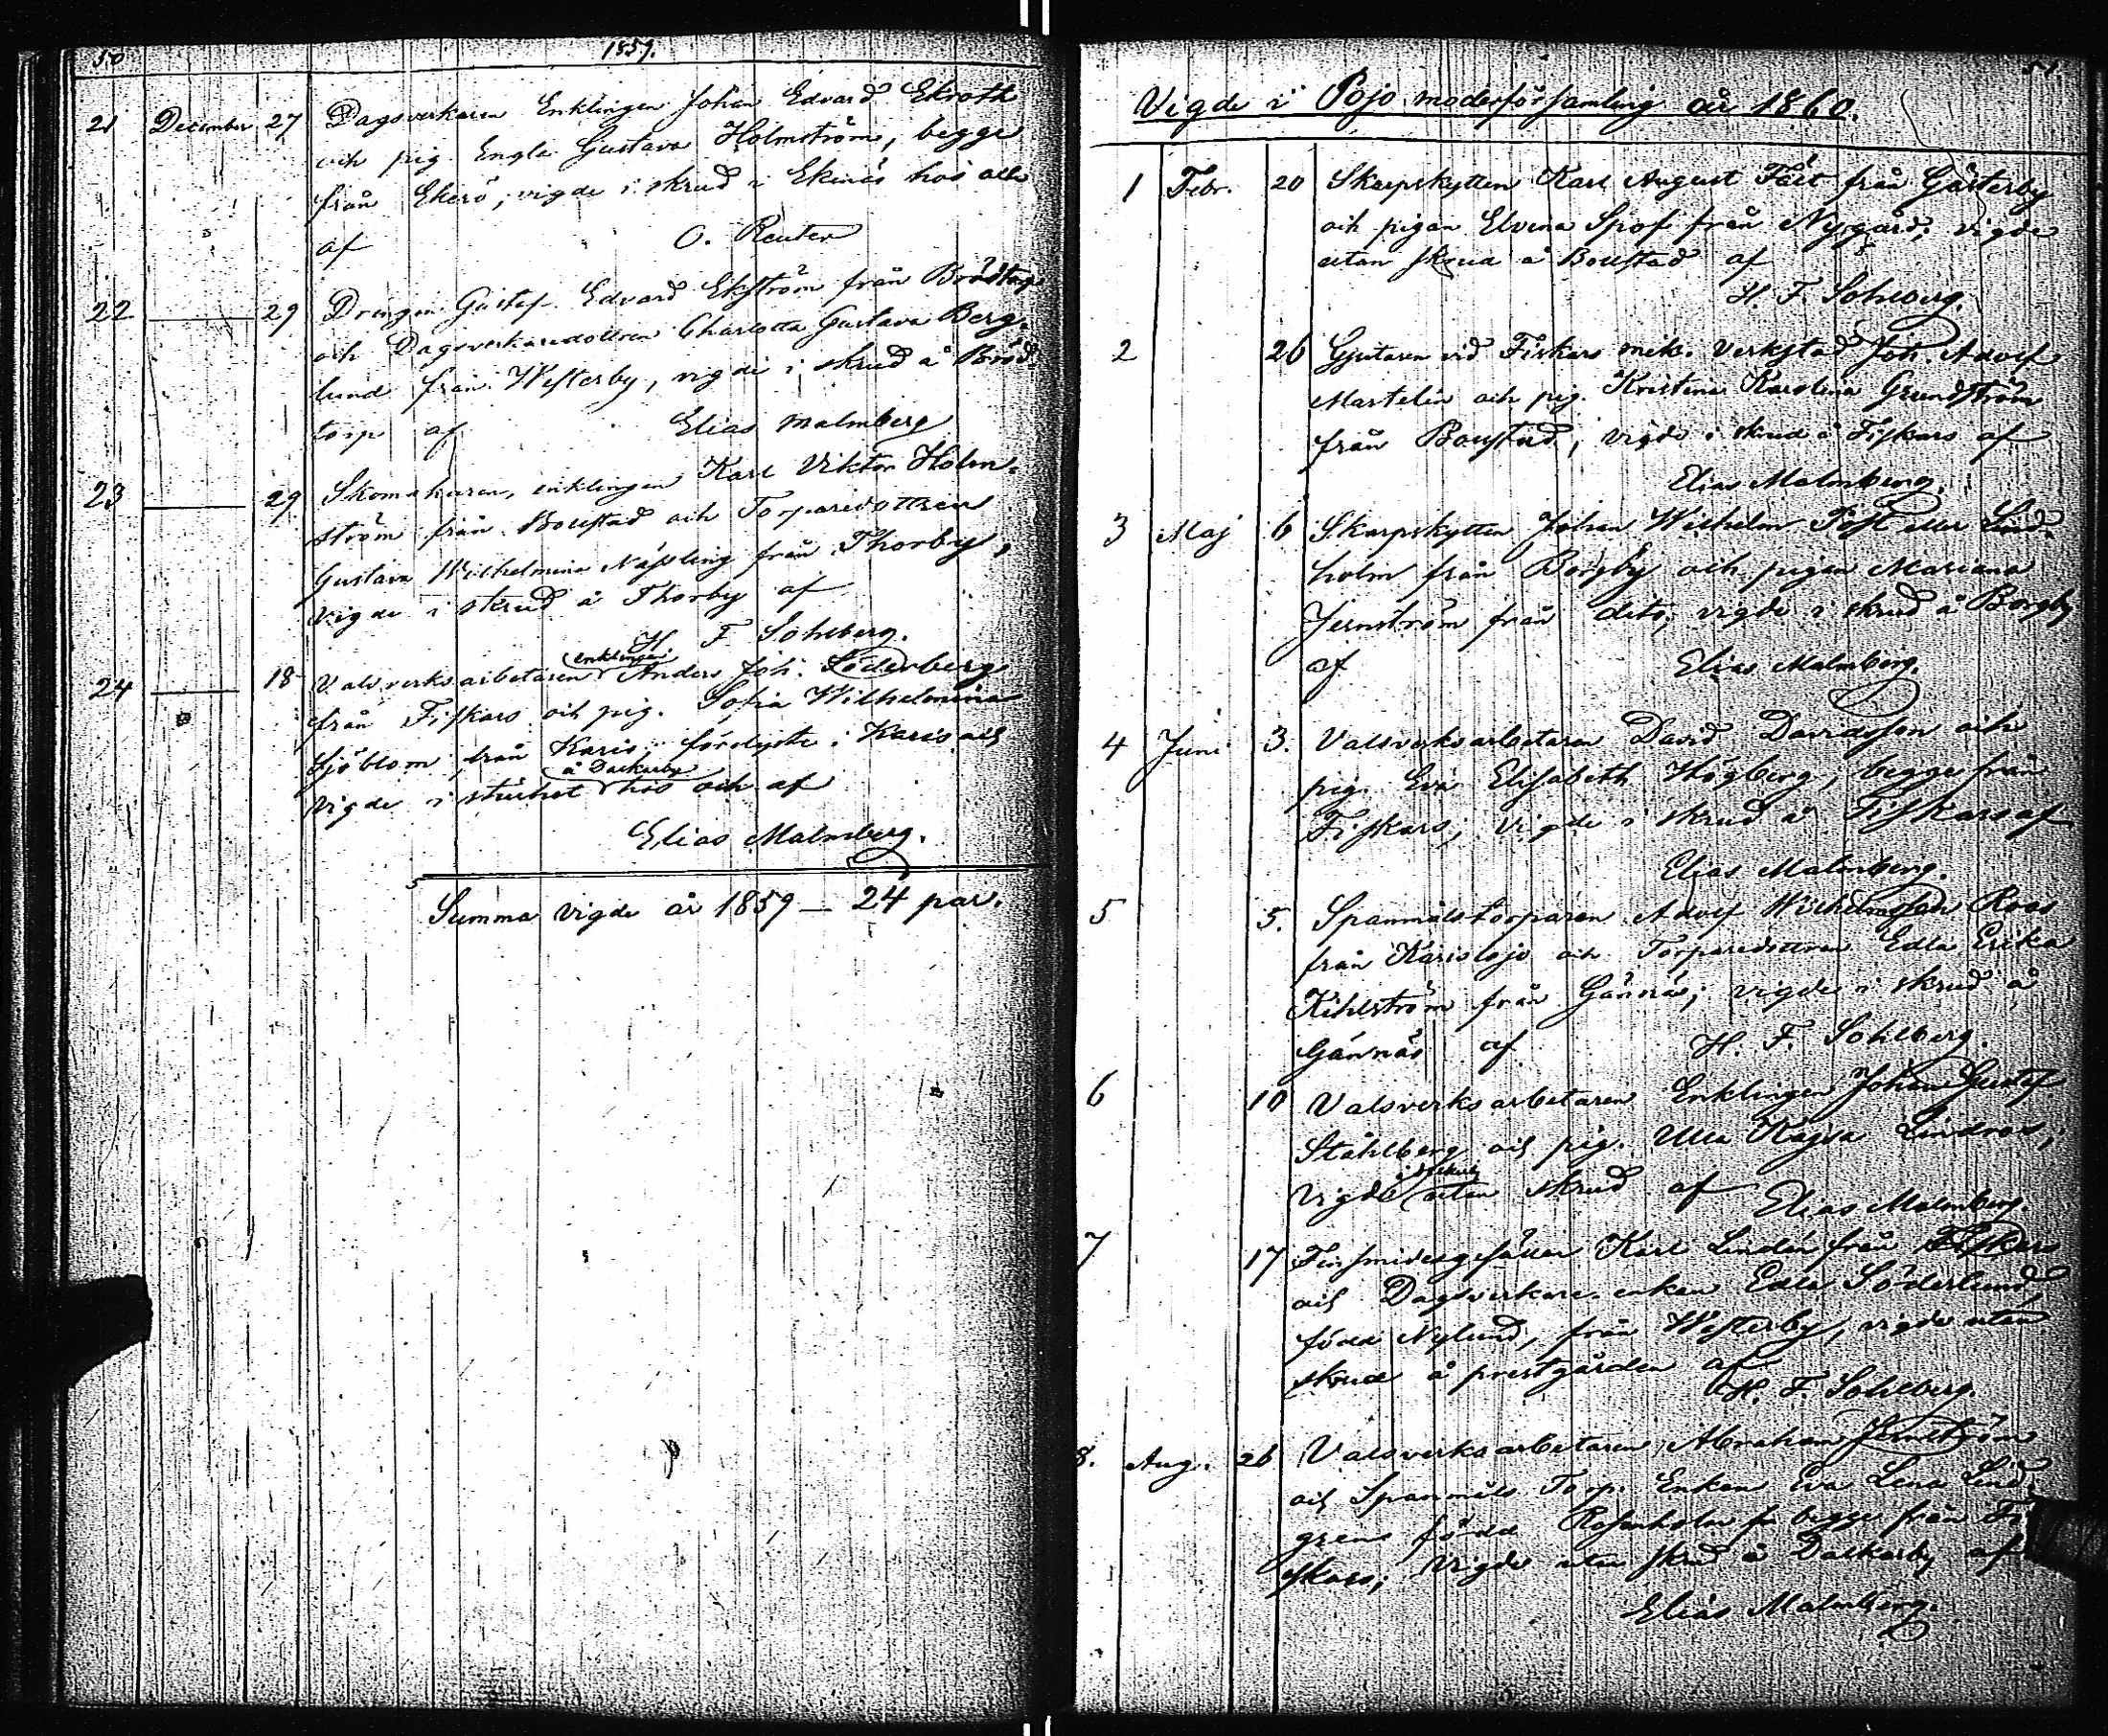 50
1859.
21 December 27 Dagsverkaren Enklingen Johan Edvard Ekroth
och pig. Engla Gustava Holmström, begge
från Ekerö; vigde i skrud i Ekenäs hos och
af O. Reuter
22 — 29 Drengen Gustaf Edvard Ekström från Brödtorp
och Dagsverkaredottren Charlotta Gustava Berg-
lund från Westerby, vigde i skrud å Bröd-
torp af Elias Malmberg
23 — 29 Skomakaren, enklingen Karl Viktor Holm-
ström från Boustad och Torparedottren
Gustava Wilhelmina Nässling från Thorby,
vigde i skrud å Thorby af
H F Sohlberg.
24 — 18 Valsverksarbetaren enklingen Anders Joh: Söderberg
från Fiskars och pig. Sofia Wilhelmina
Sjöblom från Karis; förelyste i Karis och
vigde i å Dalkarby hos och af
Elias Malmberg.
Summa vigde år 1859 — 24 par.
51.
Vigde i Pojo moderförsamling år 1860.
1 Febr. 20 Skarpskytten Karl August från Gästerby
och pigan Elvina Spof från Nygård; vigde
utan skrud å Boustad af
H. F. Sohlberg.
2 26 Gjutaren vid Fiskars mek. verkstad Joh. Adolf
Martelin och pig. Kristina Karolina Grundström
från Boustad; vigde i skrud å Fiskars af
Elias Malmberg.
3 Maj 6 Skarpskytten Johan Wilhelm Post eller Lind-
holm från Borgby och pigan Mariana
Jernström från dito; vigde i skrud å Borgby
af Elias Malmberg.
4 Juni 3. Valsverksarbetaren David Davidsson och
pig. Eva Elisabeth Högberg, begge från
Fiskars; vigde i skrud å Fiskars af
Elias Malmberg.
5 5. Spanmålstorparen Adolf Wilhelmsson Roos
från Karislojo och Torparedottren Edla Erika
Kihlström från Gännäs; vigde i skrud å
Gännäs af H. F. Sohlberg.
6 10 Valsverksarbetaren Enklingen Johan Gustaf
Ståhlberg och pig. Ulla Kajsa Lindroos;
vigde utan skrud af Elias Malmberg
7 17 Finsmidesgesällen Karl Lindén från Fiskars
och Dagsverkare enkan Edla Söderlund,
född Nylund, från Westerby, vigde utan
skrud å prestgården af
H. F. Sohlberg.
8. Aug. 26 Valsverksarbetaren Abraham Jernström
och Spanmåls Torp. Enkan Eva Lena Lind-
gren född Rosenholm begge från Fi-
skars; vigde utan skrud å Dalkarby af
Elias Malmberg.